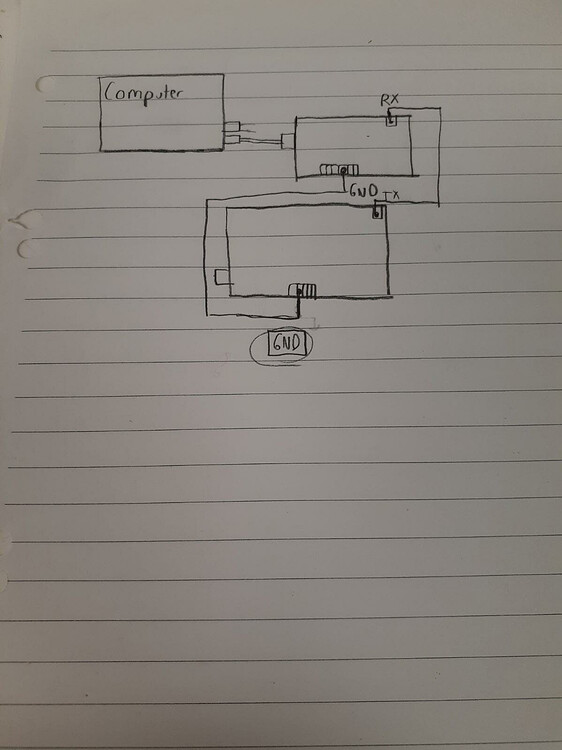 Computer
RX
GND TX
GND